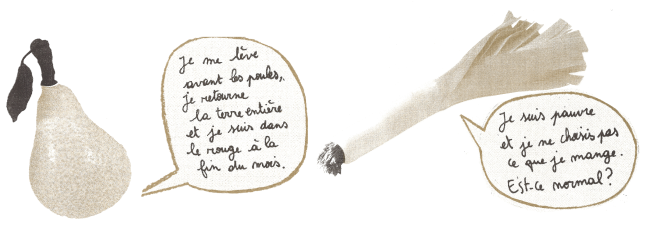 Je me lève
avant les poules,
je retourne
la terre entière
et je suis dans
le rouge à la
fin du mois.
Je suis pauvre
et je ne choisis pas
ce que je mange.
Est-ce normal?